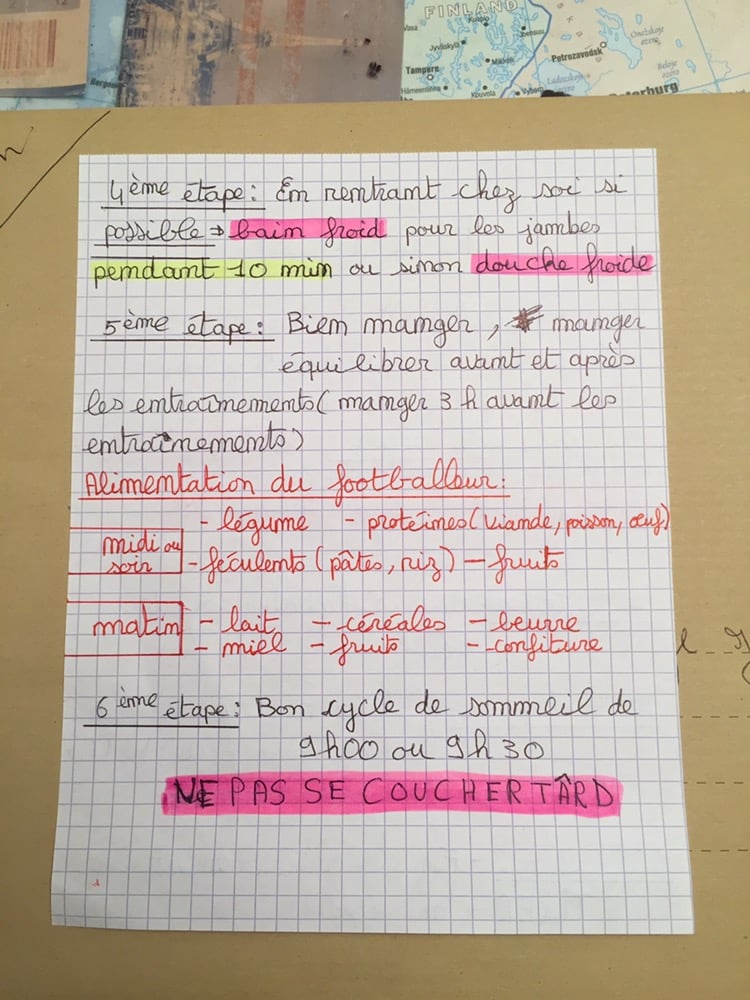 FINLAND
Kuopio
Joensuu
Jyväskylä
Mikkeli
Tampere
Hämeenlinna
Kouvola
Vyborg
Petrozavodsk
Onežskoje
ozero
Ladožskoje
ozero
Beloje
ozero
Bergen
4ème étape: En rentrant chez soi si
possible → bain froid pour les jambes
pendant 10 min ou sinon douche froide
5ème étape: Bien manger, manger
équilibrer avant et après
les entraînements (manger 3 h avant les
entraînements)
Alimentation du footballeur:
midi ou
soir
- légume - protéines (viande, poisson, œuf)
- féculents (pâtes, riz) - fruits
matin
- lait - céréales - beurre
- miel - fruits - confiture
6ème étape: Bon cycle de sommeil de
9h00 ou 9h30
NE PAS SE COUCHER TÂRD